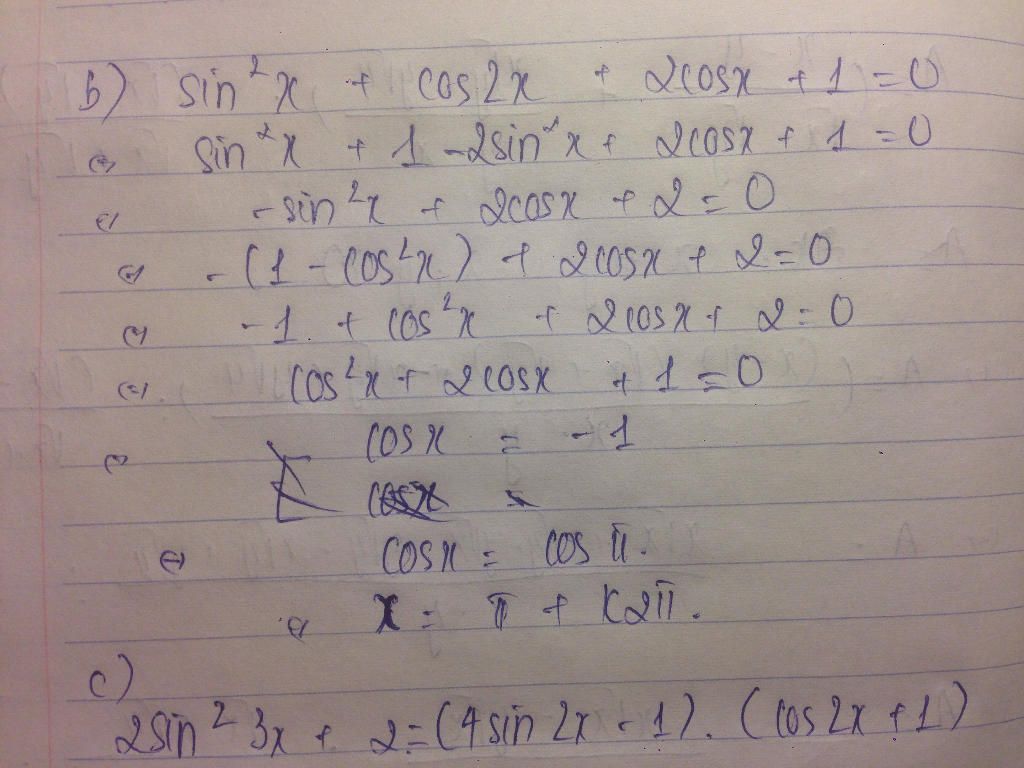 b) sin²x + cos2x + 2cosx + 1 = 0
⇔ sin²x + 1 - 2sin²x + 2cosx + 1 = 0
⇔ - sin²x + 2cosx + 2 = 0
⇔ - (1 - cos²x) + 2cosx + 2 = 0
⇔ - 1 + cos²x + 2cosx + 2 = 0
⇔ cos²x + 2cosx + 1 = 0
⇔ cosx = -1
⇔ cosx = cos π.
⇔ x = π + k2π.
c)
2sin²3x + 2 = (4sin 2x - 1). (cos2x + 1)